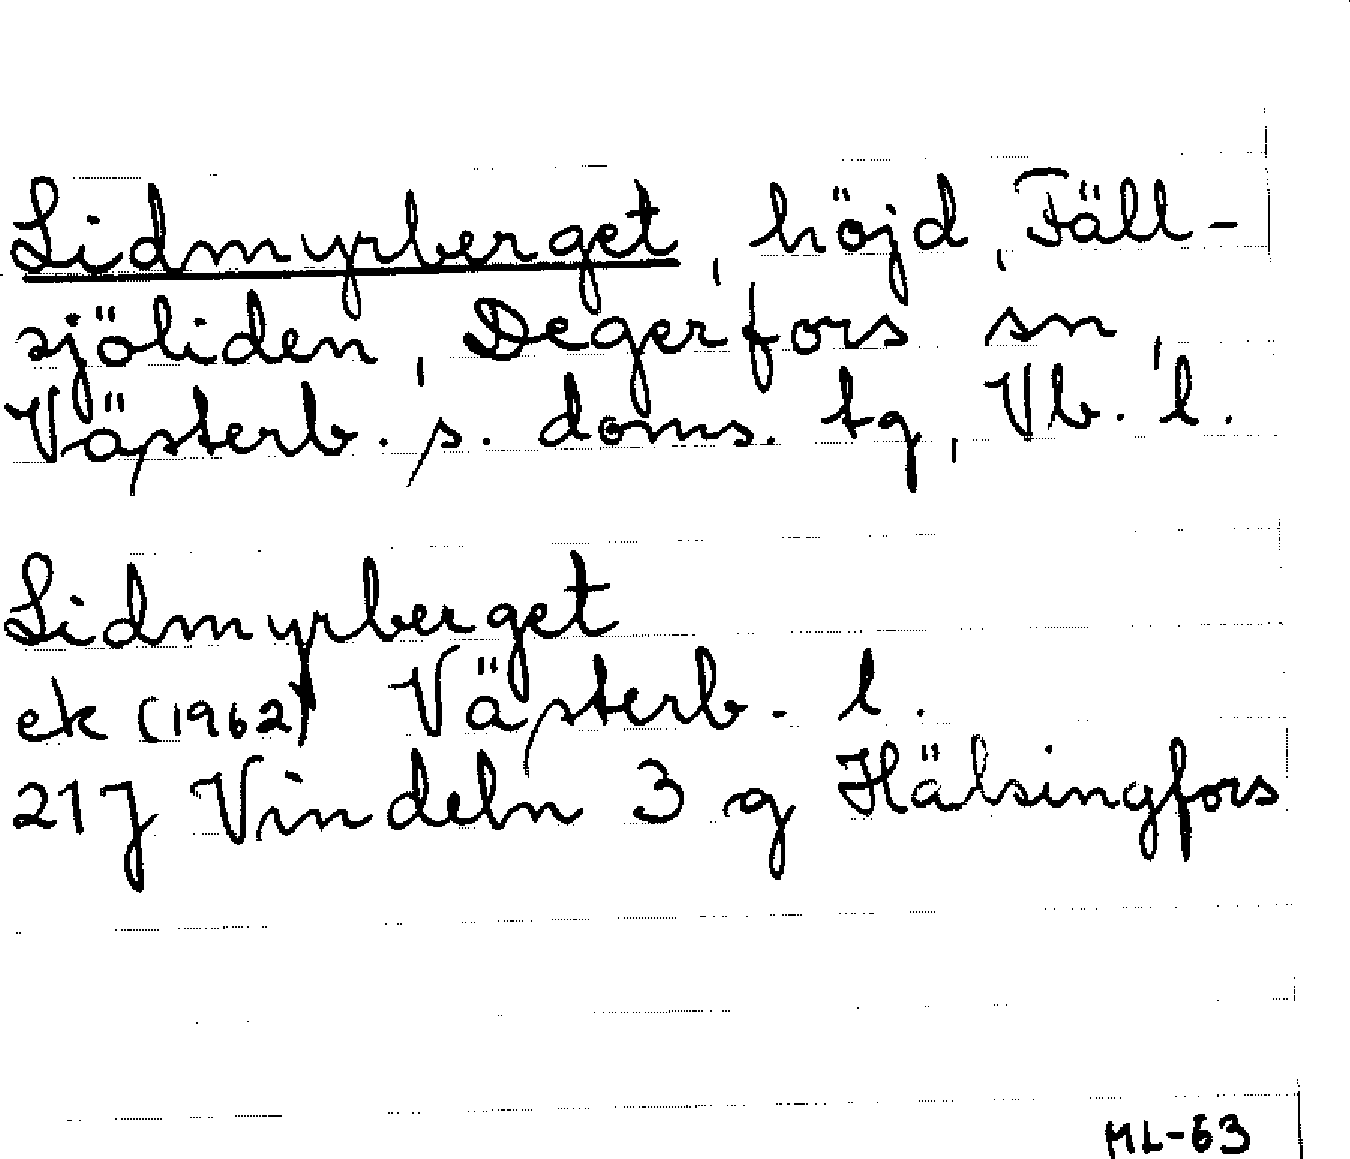 Lidmyrberget, höjd, Fäll-
sjöliden, Degerfors sn,
Västerb. s. doms. tg, Vb. l.
Lidmyrberget
ek (1962) Västerb. l.
21J Vindeln 3 g Hälsingfors
ML-63